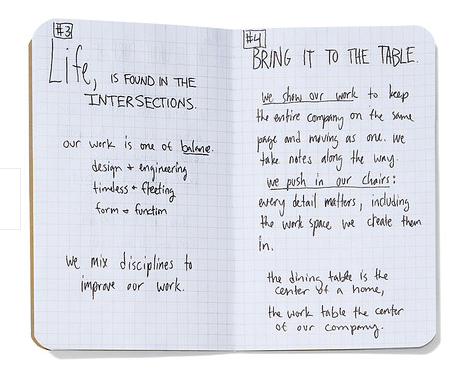 #3
Life, IS FOUND IN THE
INTERSECTIONS.
our work is one of balance.
design + engineering
timeless + fleeting
form + function
we mix disciplines to
improve our work.
#4
BRING IT TO THE TABLE.
we show our work to keep
the entire company on the same
page and moving as one. we
take notes along the way.
we push in our chairs:
every detail matters, including
the work space we create them
in.
the dining table is the
center of a home,
the work table the center
of our company.